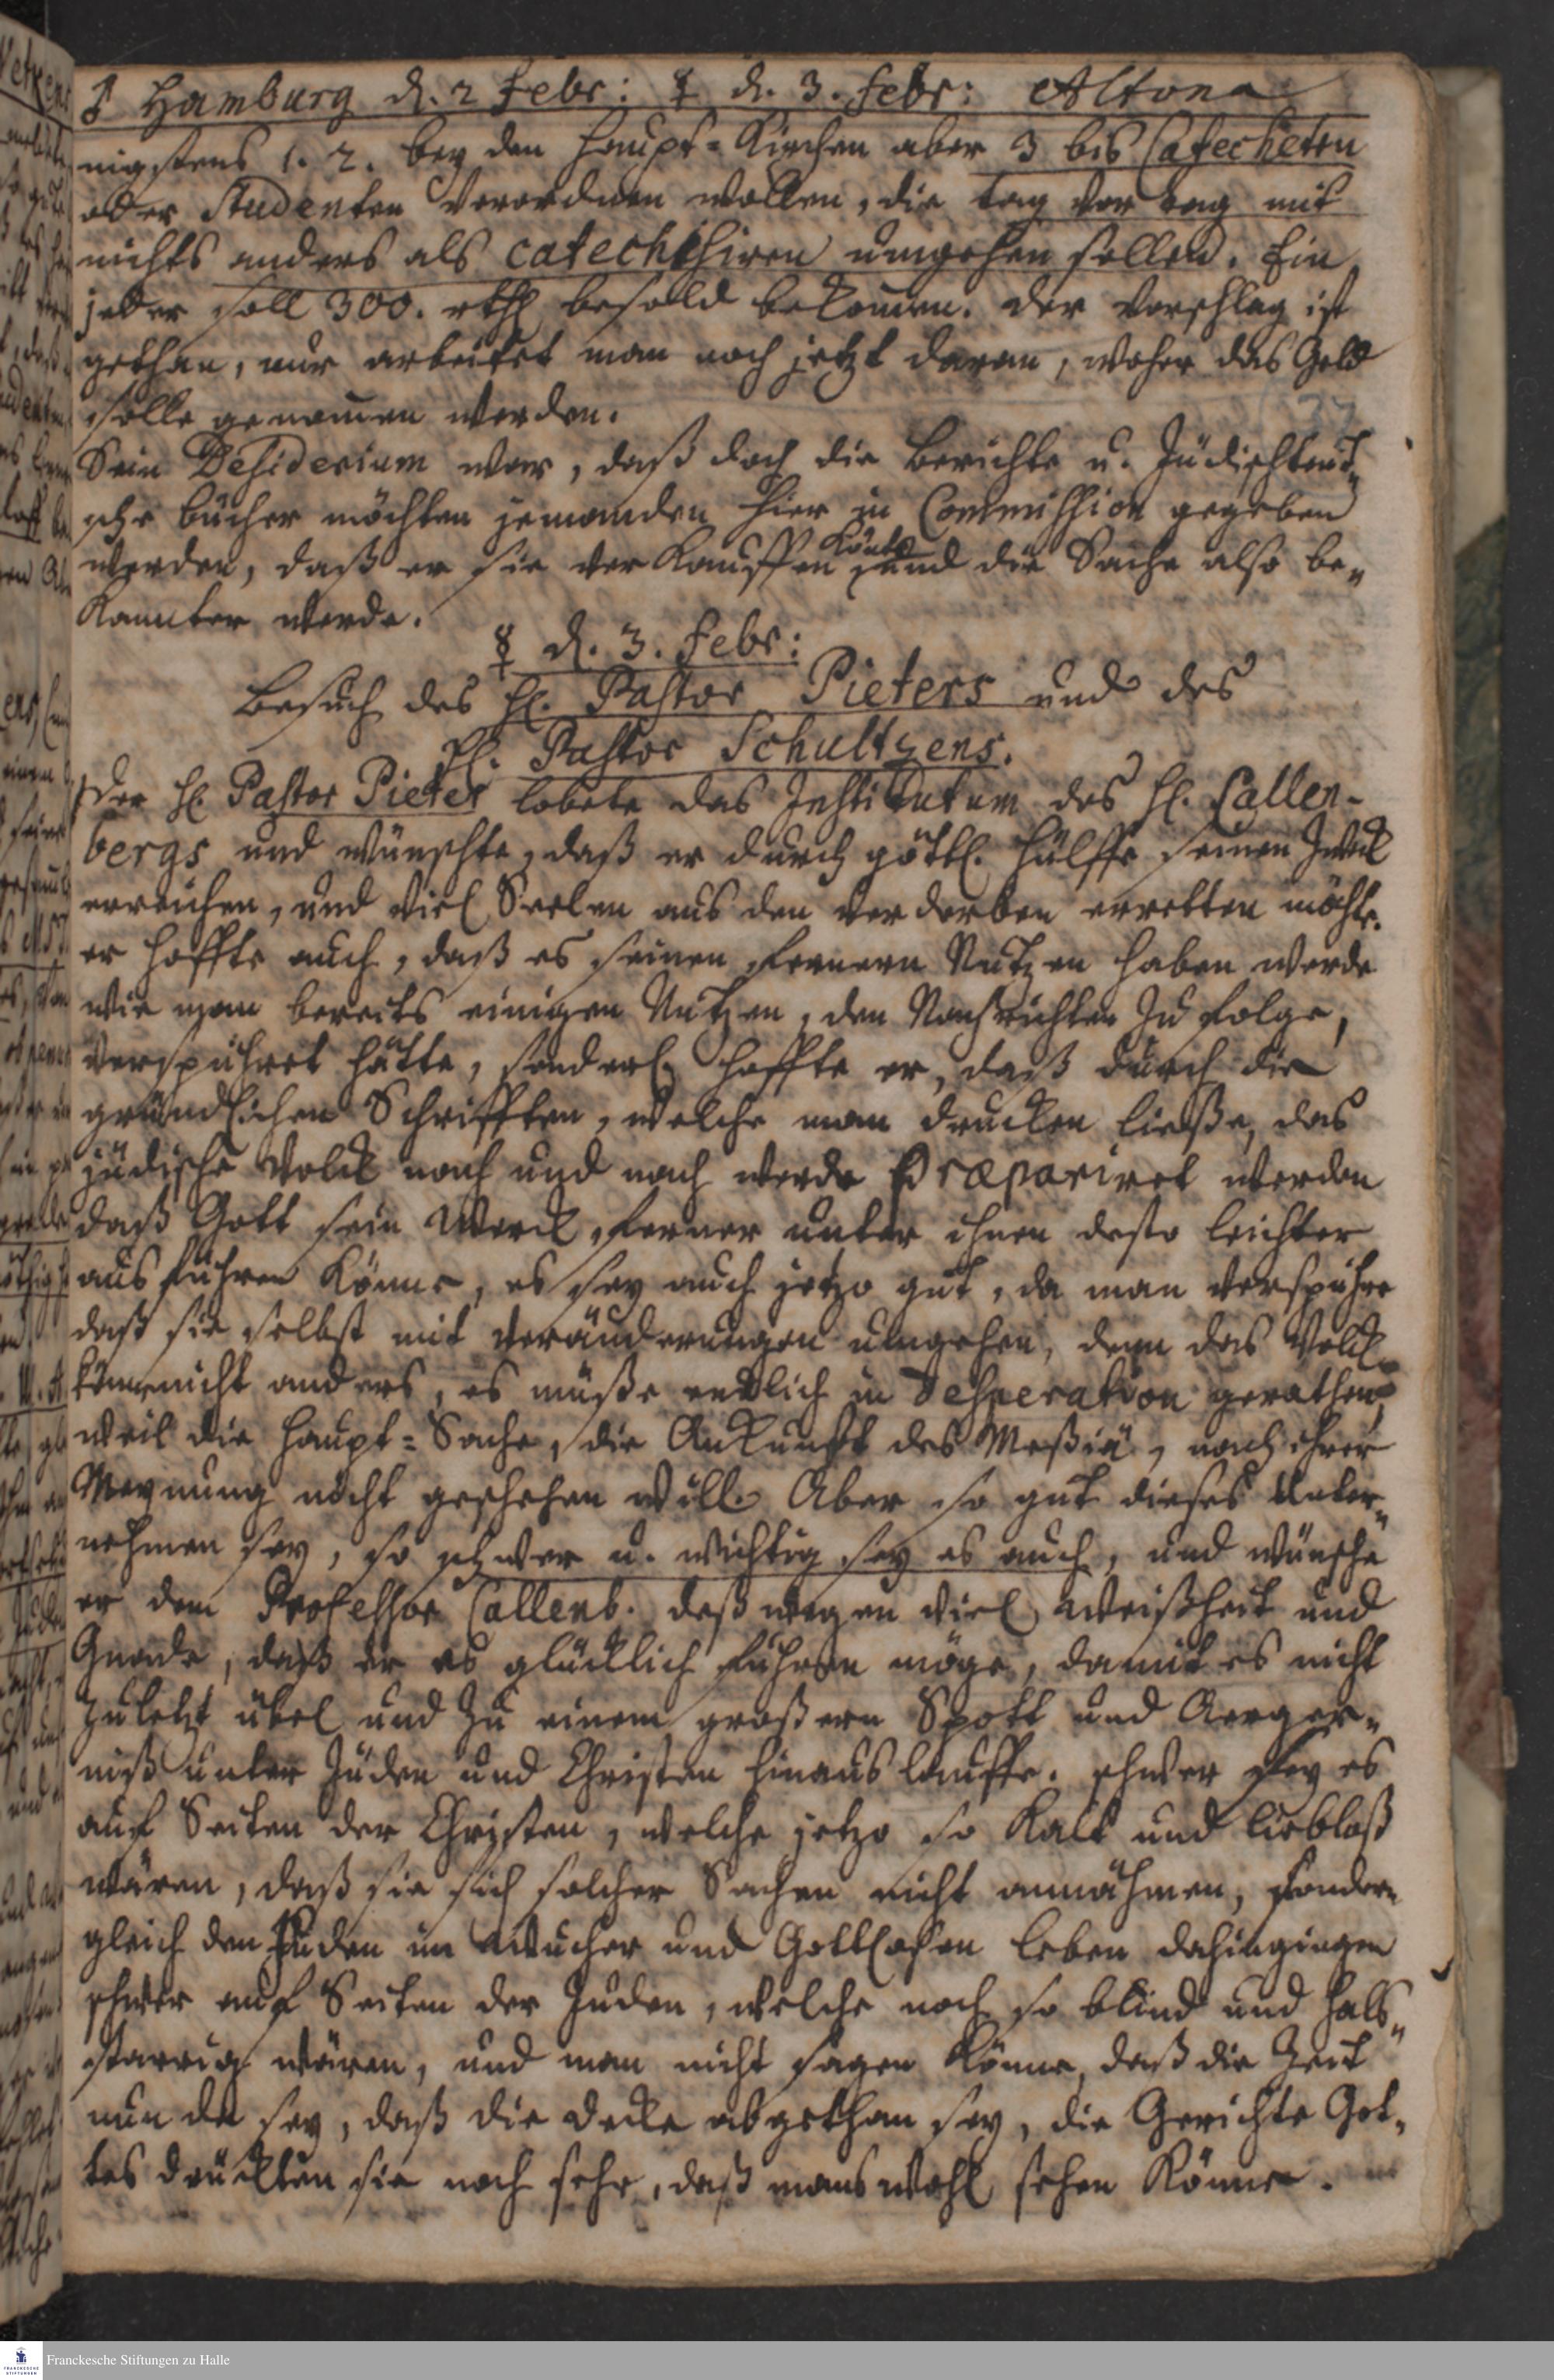 ♂ Hamburg d. 2 Febr: ☿ d. 3. Febr: Altona
nigstens 1. 2. bey den Haupt-Kirchen aber 3 bis Catecheten
oder Studenten verordnen wollen, die tag vor tag mit
nichts anders als catechisiren umgehen sollen. Ein
jeder soll 300. rthl besold bekom̄en. der Vorschlag ist
gethan, nur arbeitet man noch jetzt daran, woher das Geld
solle genom̄en werden.
Sein Desiderium war, daß doch die Berichte u. Jüdischteut„
sche bücher möchten jemanden hier in Commission gegeben
werden, daß er sie verkauffen könte und die Sache also be„
kannter werde.
☿ d. 3. Febr:
Besuch des H. Pastor Pieters und des
H. Pastor Schultzens.
Der H. Pastor Pieter lobete das Institutum des H. Callen-
bergs und wünschte, daß er durch göttl. Hülffe seinen Zweck
erreichen, und viel Seelen aus den verderben erretten möchte.
er hoffte auch, daß es seinen fernern Nutzen haben werde
wie man bereits einigen Nutzen, den Nachrichten zu folge,
verspühret hätte, sonderl. hoffte er, daß durch die
gründlichen Schrifften, welche man drucken ließe, das
jüdische Volck nach und nach werde præpariret werden
daß Gott sein Werck ferner unter ihnen desto leichter
ausführen könne, es sey auch jetzo gut, da man verspühre
daß sie selbst mit veränderungen umgehen, denn das Volck
könne nicht anders, es müße endlich in Desperation gerathen,
weil die Haupt-Sache, die Ankunfft des Meßiä, nach ihrer
Meynung nicht geschehen will. Aber so gut dieses Unter„
nehmen sey, so schwer u. wichtig sey es auch, und wünsche
er dem Professor Callenb. deßwegen viel Weißheit und
Gnade, daß er es glücklich führen möge, damit es nicht
zuletzt übel und zu einem großern Spott und Aerger„
niß unter Juden und Christen hinaus lauffe. schwer sey es
auf Seiten der Christen, welche jetzo so kalt und liebloß
wären, daß sie sich solcher Sachen nicht annähmen, sondern
gleich den Juden im Wucher und Gottlosen leben dahingingen
schwer auf Seiten der Juden, welche noch so blind und hals„
starrig wären, und man nicht sagen könne, daß die Zeit
nun da sey, daß die decke abgethan sey, die Gerichte Got„
tes drückten sie noch sehr, daß mans wohl sehen könne.
Franckesche Stiftungen zu Halle